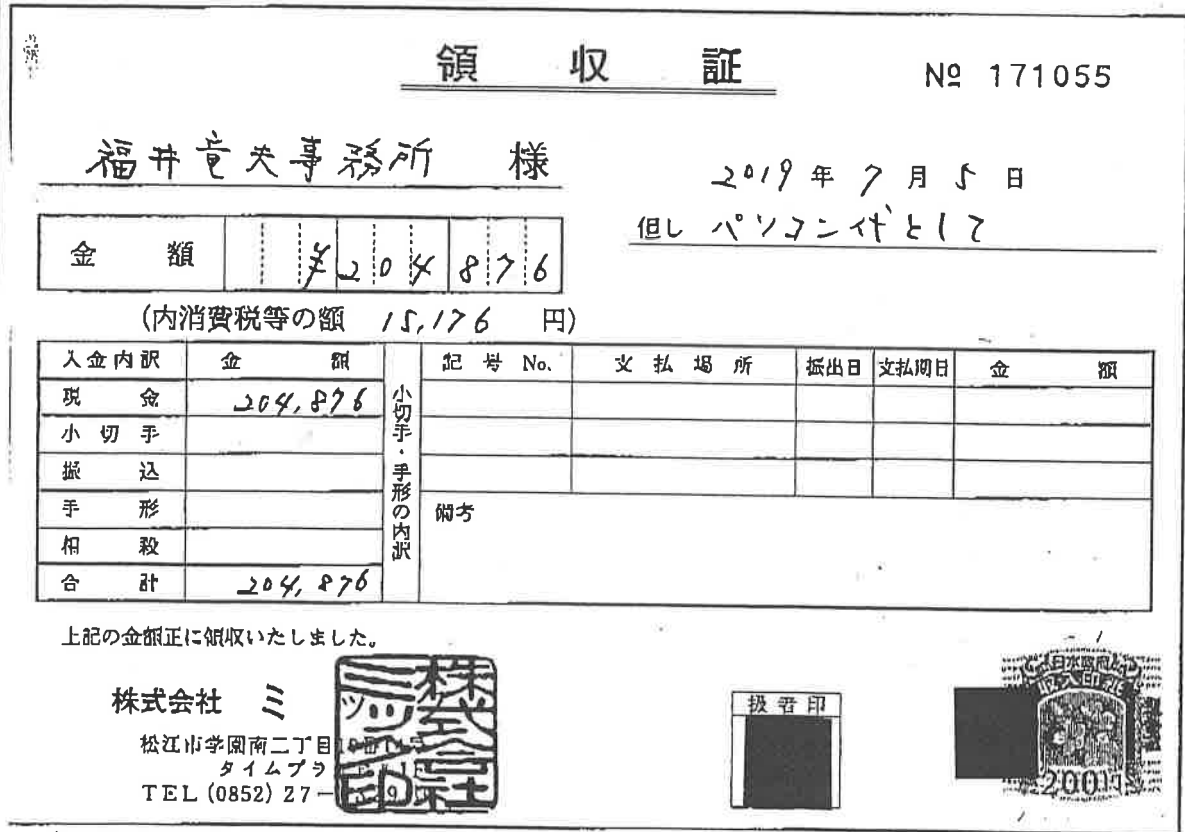 領収証
№ 171055
福井竜夫事務所 様
2019年7月5日
但し パソコン代として
金額 ¥204876
(内消費税等の額 15,176 円)
入金内訳 金額
現金 204,876
小切手
振込
手形
相殺
合計 204,876
小切手・手形の内訳
記号 No. 支払場所 振出日 支払期日 金額
備考
上記の金額正に領収いたしました。
株式会社 ミ
松江市学園南二丁目
タイムプラ
TEL (0852) 27-
扱者印
日本政府
収入印紙
200円